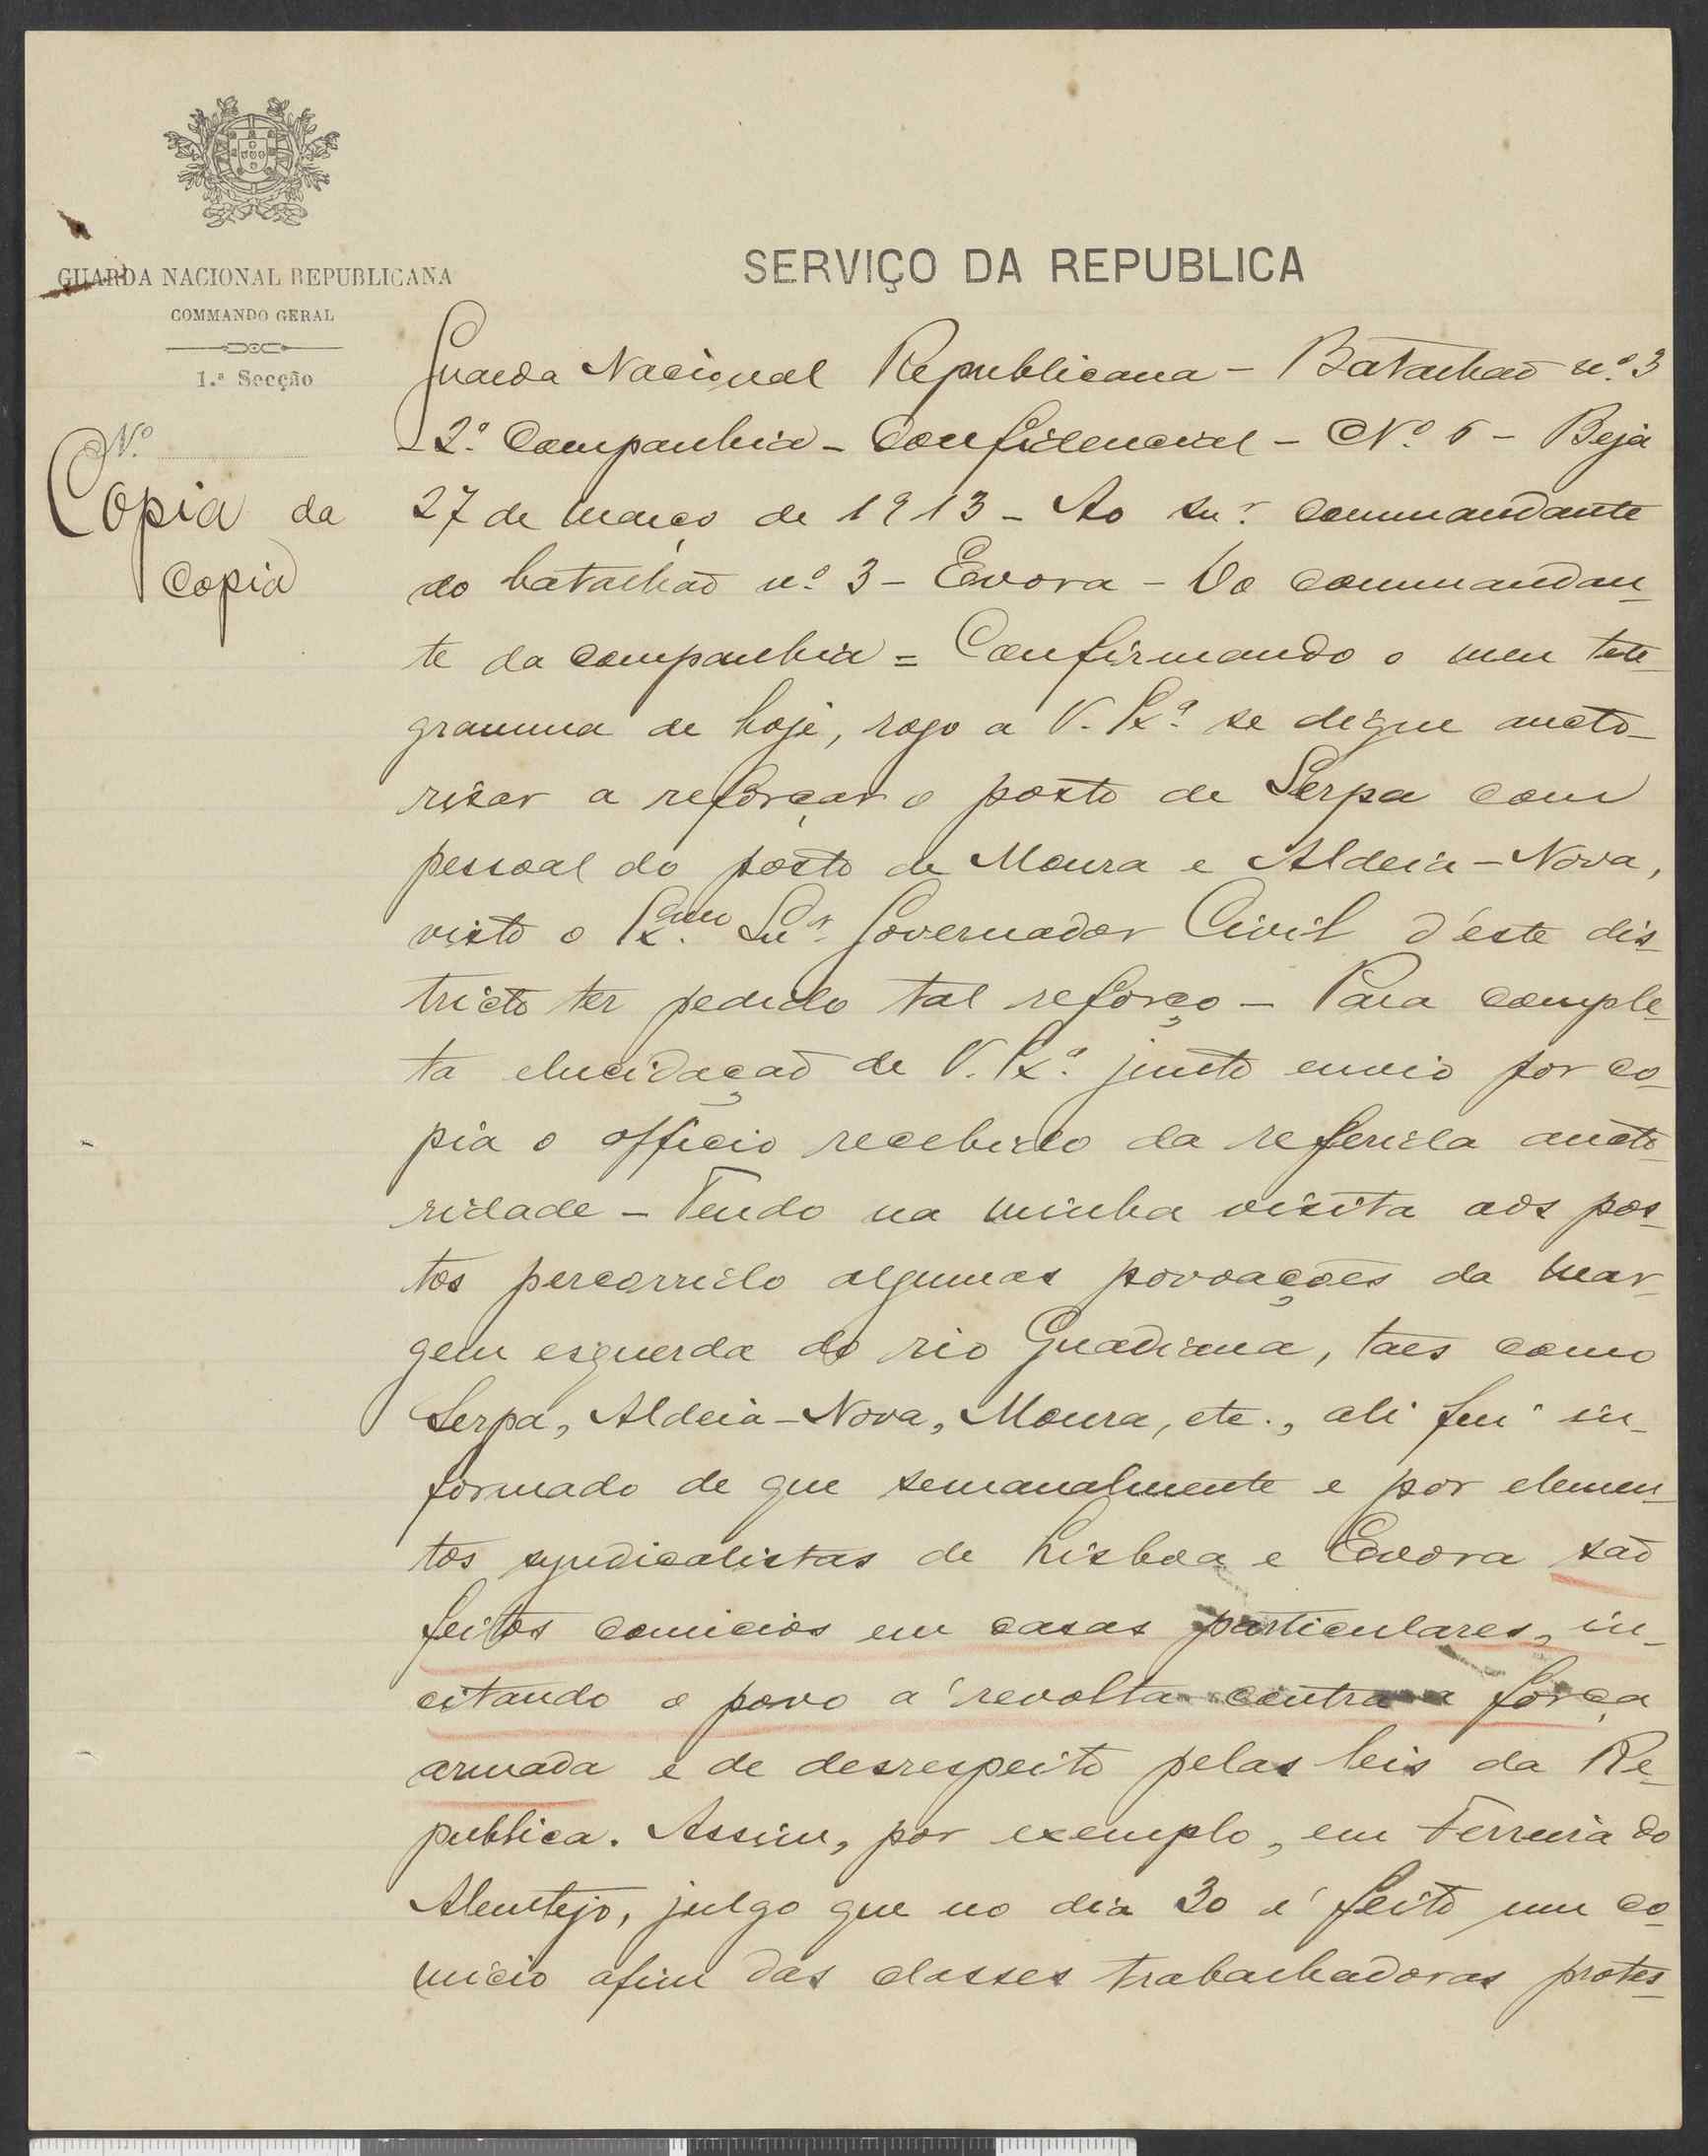 GUARDA NACIONAL REPUBLICANA
COMMANDO GERAL
1.ª Secção
N.º
Copia da
copia
SERVIÇO DA REPUBLICA
Guarda Nacional Republicana - Batalhaõ n.º 3
- 2.ª Companhia - Confidencial - N.º 6 - Beja
27 de março de 1913 - Ao Snr. commandante
do batalhaõ n.º 3 - Evora - Do commandan-
te da companhia = Confirmando o meu tele-
gramma de hoje, rogo a V. Ex.ª se digne aucto-
risar a reforçar o posto de Serpa com
pessoal do posto de Moura e Aldeia-Nova,
visto o Ex.mo Snr. Governador Civil d'este dis-
tricto ter pedido tal reforço - Para comple-
ta elucidaçaõ de V. Ex.ª junto envio por co-
pia o officio recebido da referida aucto-
ridade - Tendo na minha visita aos pos-
tos percorrido algumas povoações da mar-
gem esquerda do rio Guadiana, taes como
Serpa, Aldeia-Nova, Moura, etc., ali fui in-
formado de que semanalmente e por elemen-
tos syndicalistas de Lisboa e Evora saõ
feitos comicios em casas particulares, in-
citando o povo á revolta contra a força
armada e de desrespeito pelas leis da Re-
publica. Assim, por exemplo, em Ferreira do
Alemtejo, julgo que no dia 30 é feito um co-
micio afim das classes trabalhadoras protes-